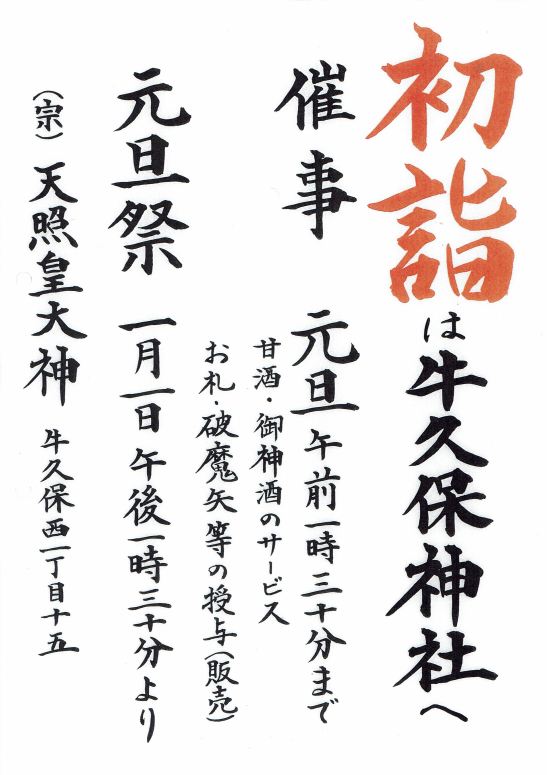 初詣は牛久保神社へ
催事 元旦 午前一時三十分まで
甘酒・御神酒のサービス
お札・破魔矢等の授与(販売)
元旦祭 一月一日 午後一時三十分より
(宗)天照皇大神 牛久保西一丁目十五